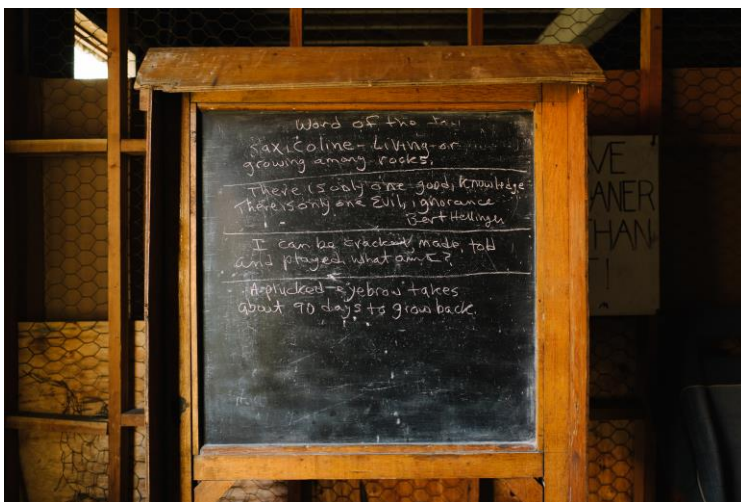 Word of the
Saxicoline - Living or
growing among rocks.
There is only one good, knowledge
There is only one Evil, ignorance
Bert Hellinger
I can be cracked, made, told
and played. what am I?
A plucked eyebrow takes
about 90 days to grow back.
VE
ANER
HAN
T!